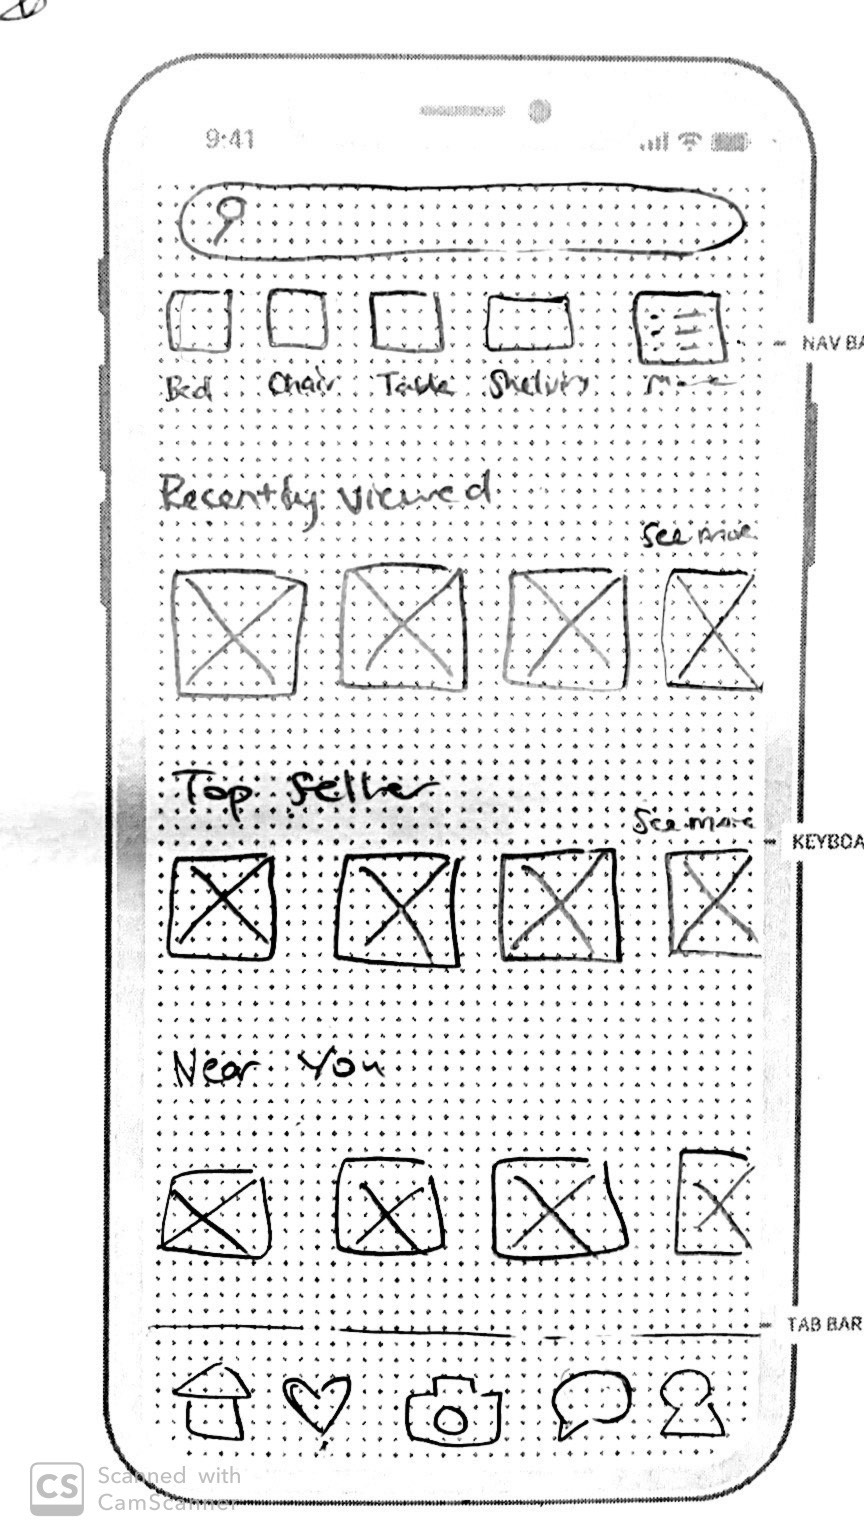 9:41
NAV BA
Bed Chair Table Shelving
Recently viewed
See more
Top Seller
See more
KEYBOA
Near You
TAB BAR
CS Scanned with
CamScanner